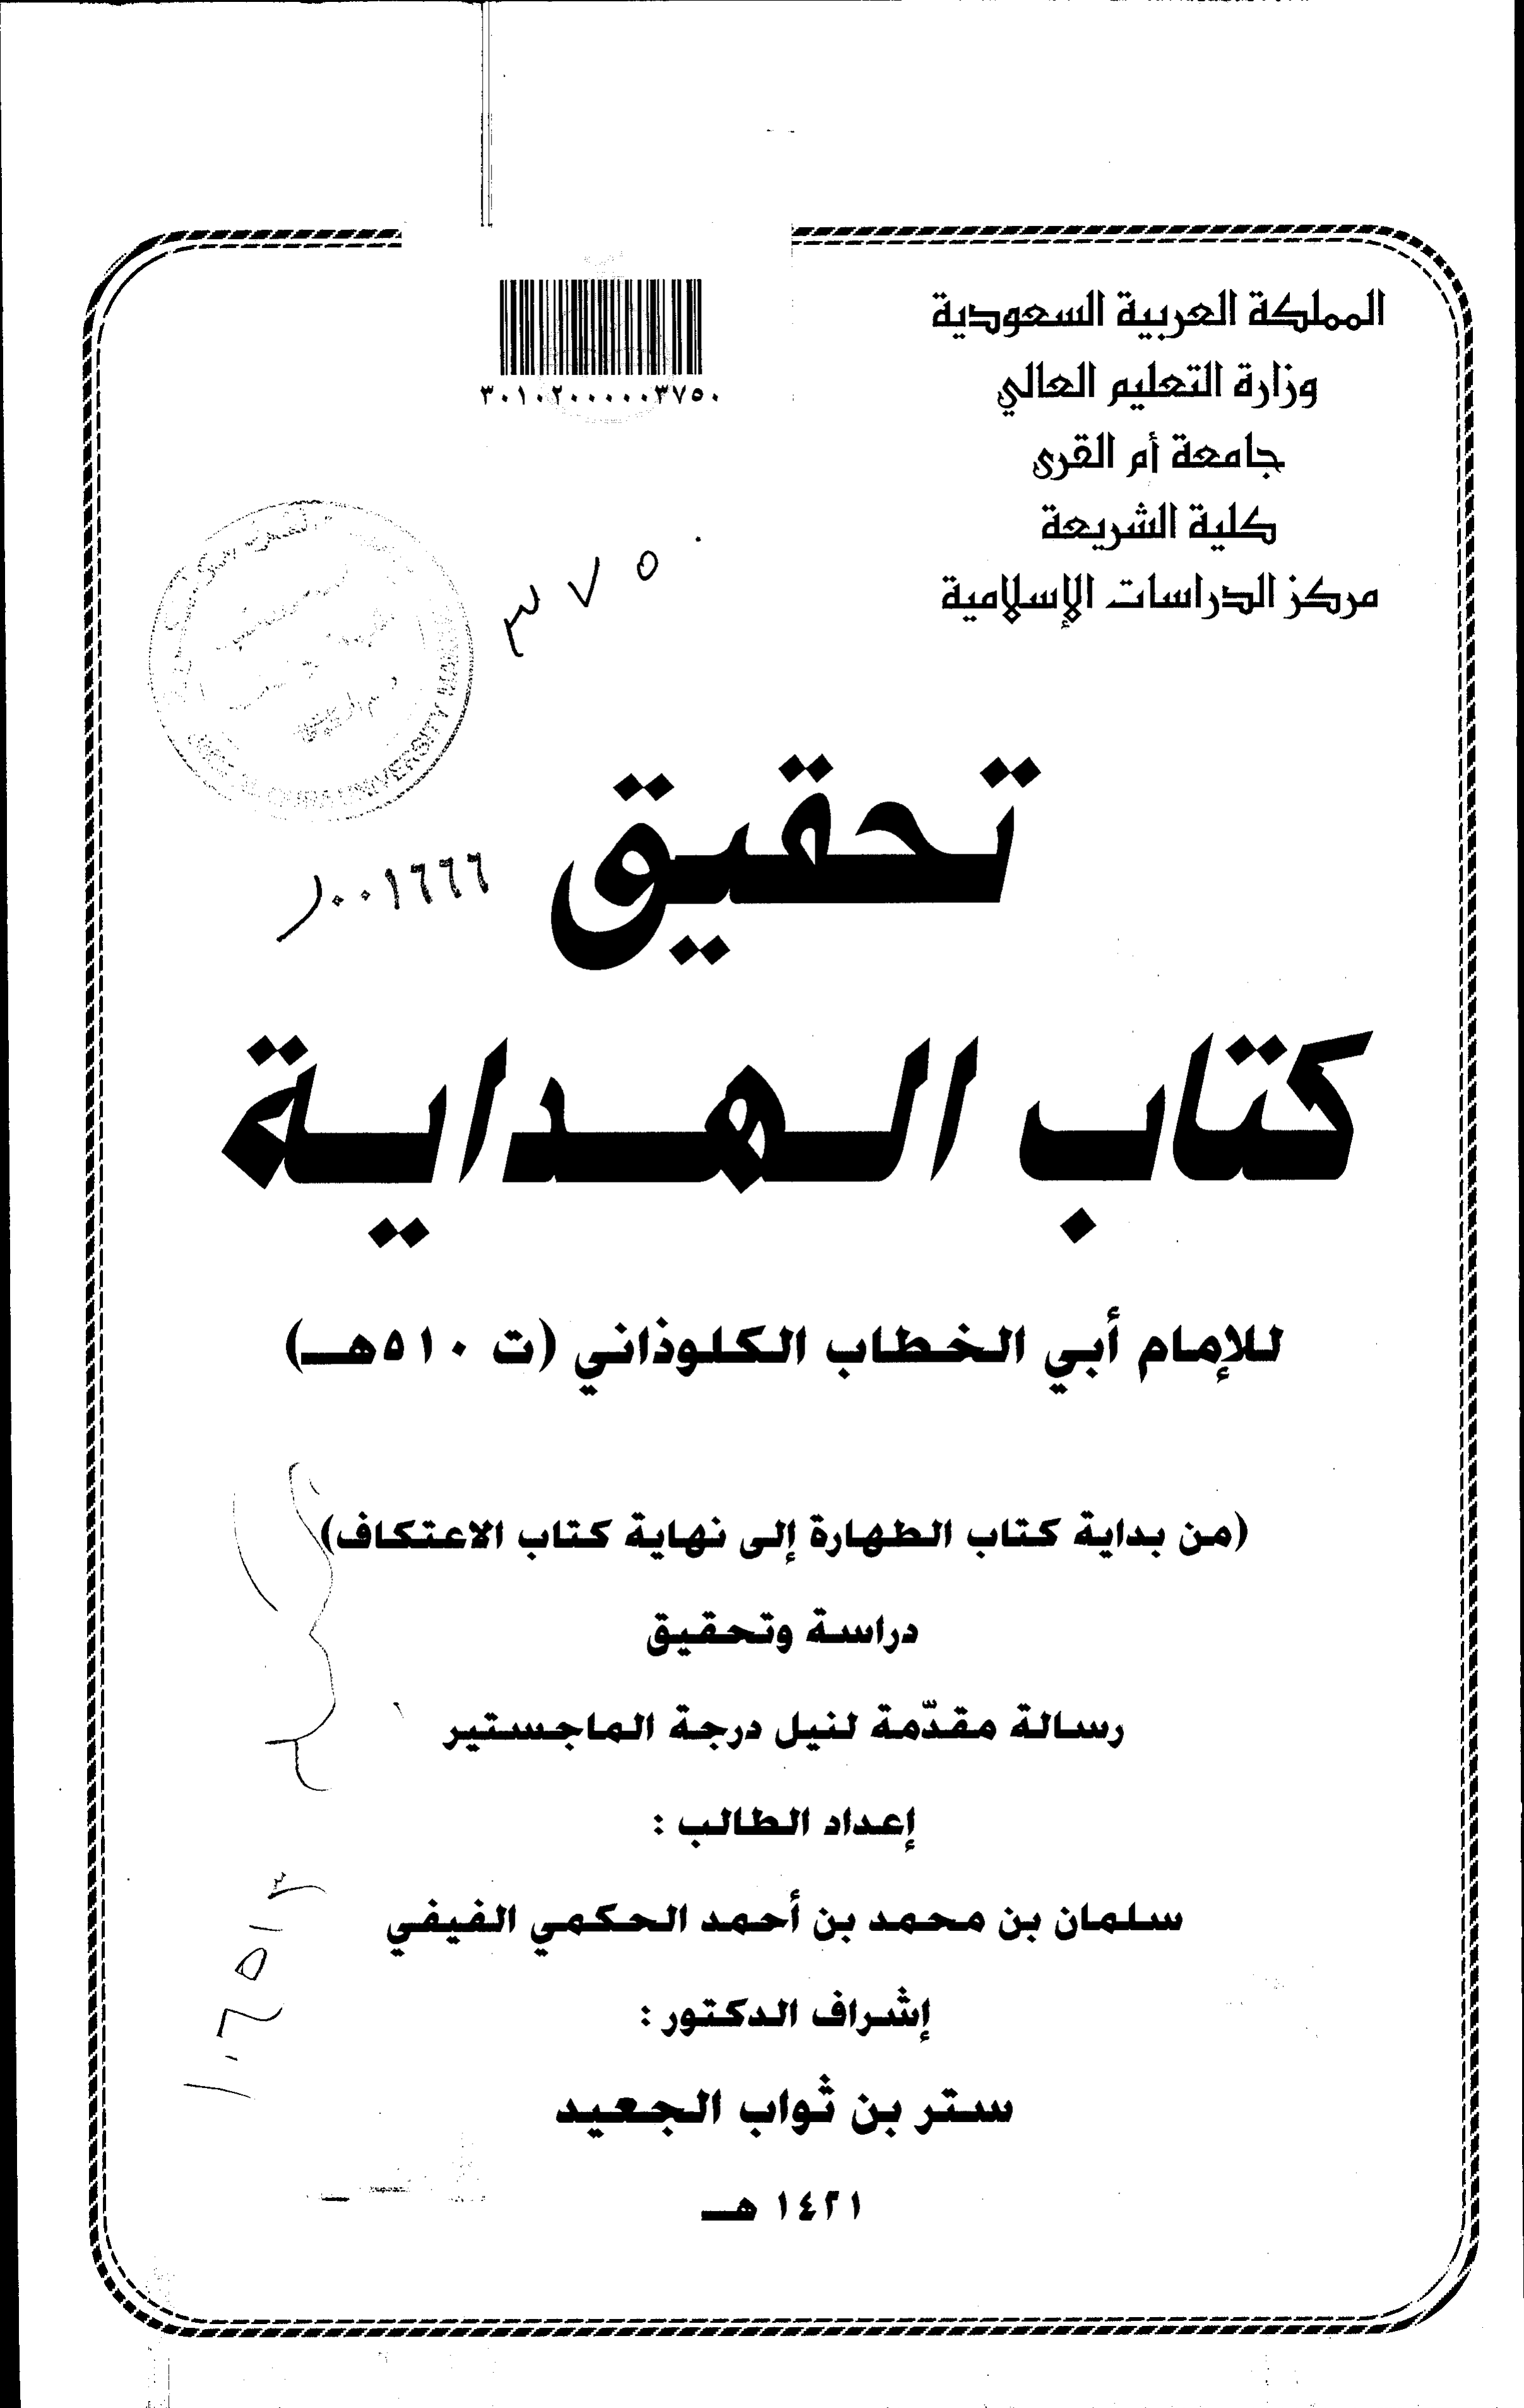 المملكة العربية السعودية
وزارة التعليم العالي
جامعة أم القرى
كلية الشريعة
مركز الدراسات الإسلامية
٣٠١٠٢٠٠٠٠٠٣٧٥٠
٣٧٥٠
UNIVERSITY
تحقيق
١٠٠١٦٦٦
كتاب الهداية
للإمام أبي الخطاب الكلوذاني (ت ٥١٠هـ)
(من بداية كتاب الطهارة إلى نهاية كتاب الاعتكاف)
دراسة وتحقيق
رسالة مقدّمة لنيل درجة الماجستير
إعداد الطالب :
سلمان بن محمد بن أحمد الحكمي الفيفي
إشراف الدكتور :
ستر بن ثواب الجعيد
١٤٢١ هـ